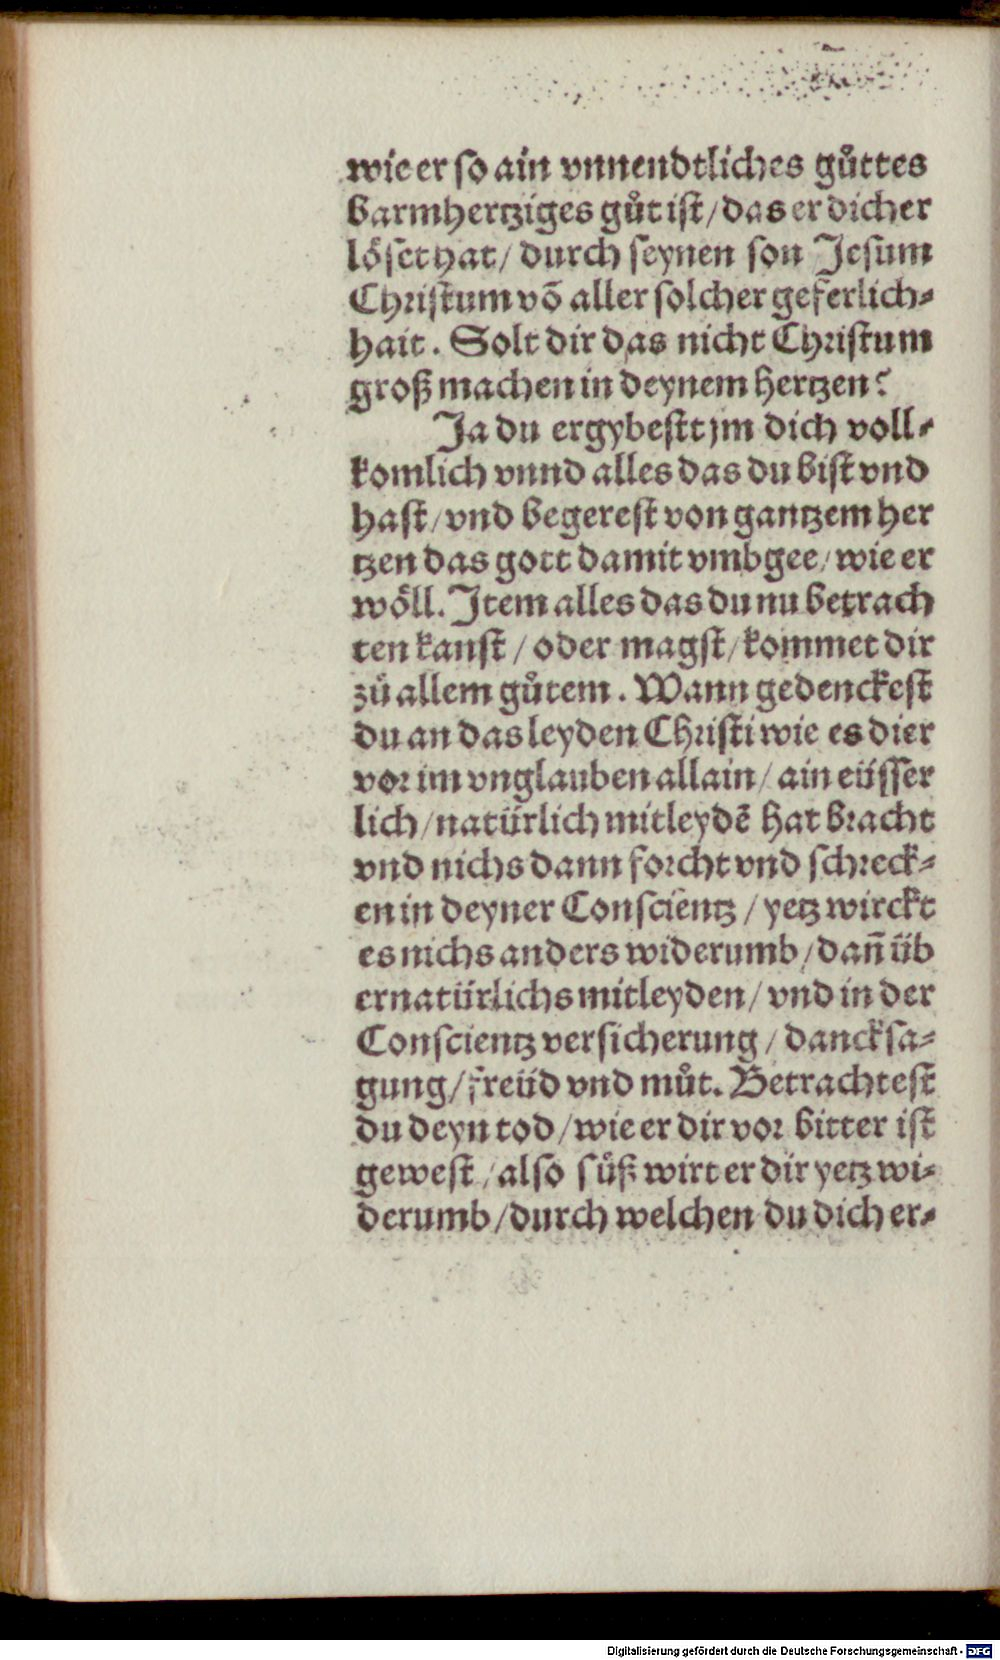 wie er so ain vnnendtliches gůttes
barmhertziges gůt ist/ das er dich er
löset hat/ durch seynen son Jesum
Christum võ aller solcher geferlich⸗
hait. Solt dir das nicht Christum
groß machen in deynem hertzen?
Ja du ergybest jm dich voll⸗
komlich vnnd alles das du bist vnd
hast/ vnd begerest von gantzem her
tzen das gott damit vmbgee/ wie er
wöll. Item alles das du nu betrach
ten kanst/ oder magst/ kommet dir
zů allem gůtem. Wann gedenckest
du an das leyden Christi wie es dier
vor im vnglauben allain/ ain eüsser
lich/ natürlich mitleydẽ hat bracht
vnd nichs dann forcht vnd schreck⸗
en in deyner Conscientz/ yetz wirckt
es nichs anders widerumb/ dañ üb
ernatürlichs mitleyden/ vnd in der
Conscientz versicherung/ dancksa⸗
gung/ freüd vnd můt. Betrachtest
du deyn tod/ wie er dir vor bitter ist
gewest/ also sůß wirt er dir yetz wi⸗
derumb/ durch welchen du dich er⸗
Digitalisierung gefördert durch die Deutsche Forschungsgemeinschaft - DFG